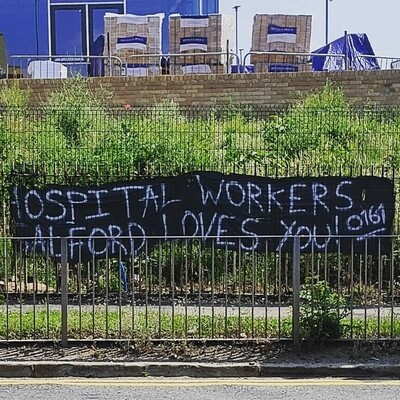 HOSPITAL WORKERS
SALFORD LOVES YOU! 0161